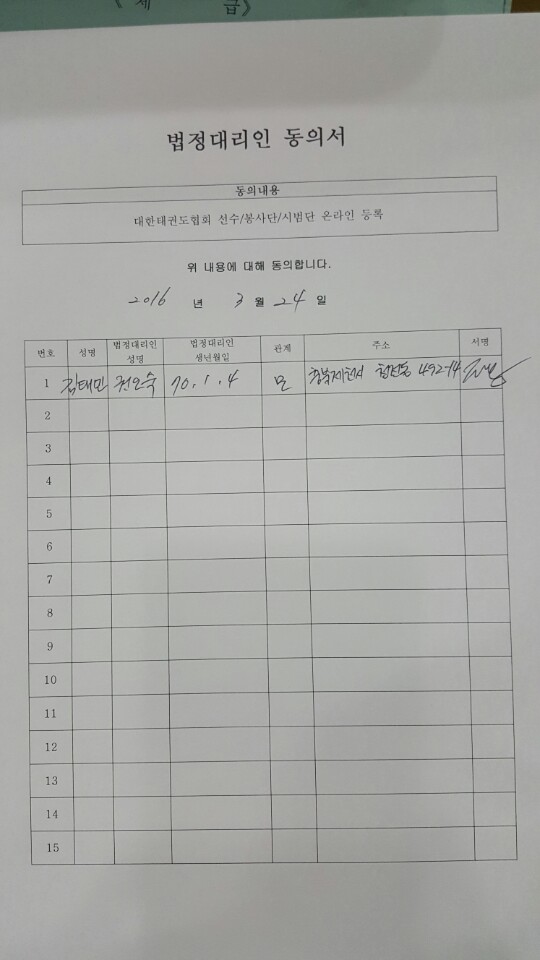 《 제 급》
법정대리인 동의서
동의내용
대한태권도협회 선수/봉사단/시범단 온라인 등록
위 내용에 대해 동의합니다.
2016 년 3 월 24 일
번호 성명 법정대리인 성명 법정대리인 생년월일 관계 주소 서명
1 김태민 권오숙 70.1.4 모 충북제천시 청전동 492-14
2
3
4
5
6
7
8
9
10
11
12
13
14
15